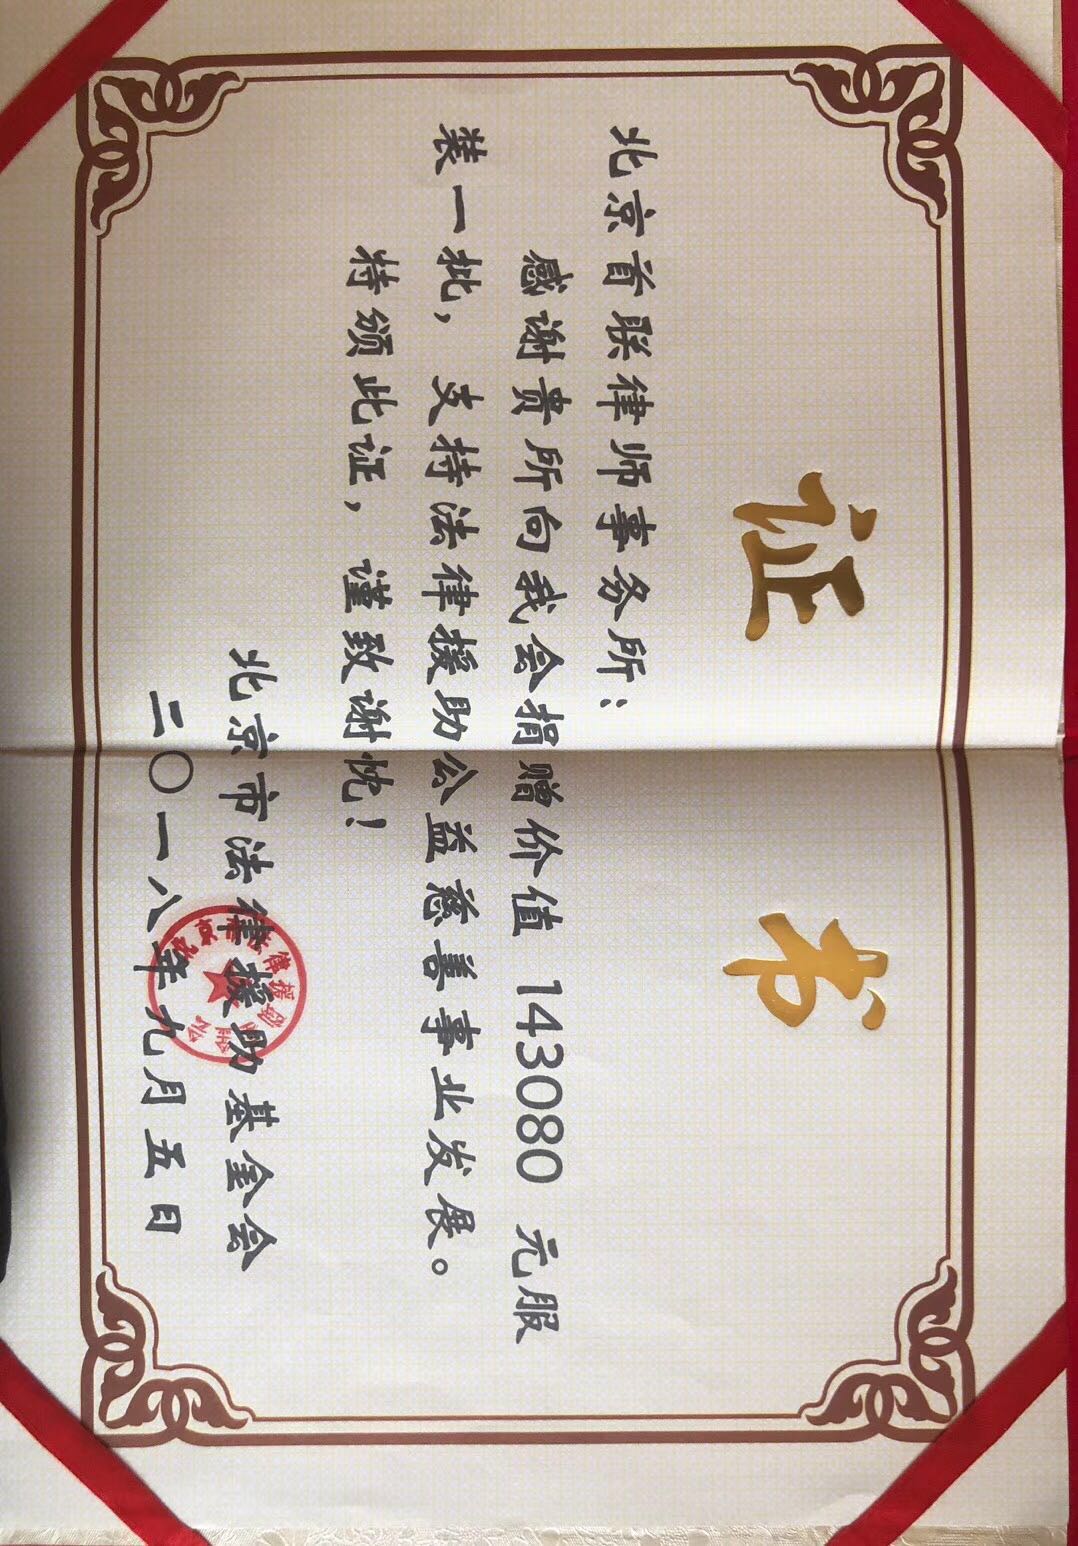 证 书
北京首联律师事务所：
感谢贵所向我会捐赠价值 143080 元服
装一批，支持法律援助公益慈善事业发展。
特颁此证，谨致谢忱！
北京市法律援助基金会
二〇一八年九月五日
北京市法律援助基金会